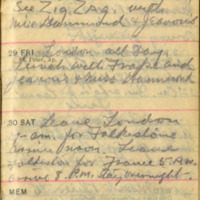 See Zig Zag, with
Miss Hammond & Jeavons
29 FRI London all Day.
Lunch with Frazer and
Jeavons & Miss Hammond
30 SAT Leave London
7-am. for Folkestone
arrive noon. Leave
Folkestone for France 5 A.M.
arrive 8. P.M. Stay overnight-
MEM